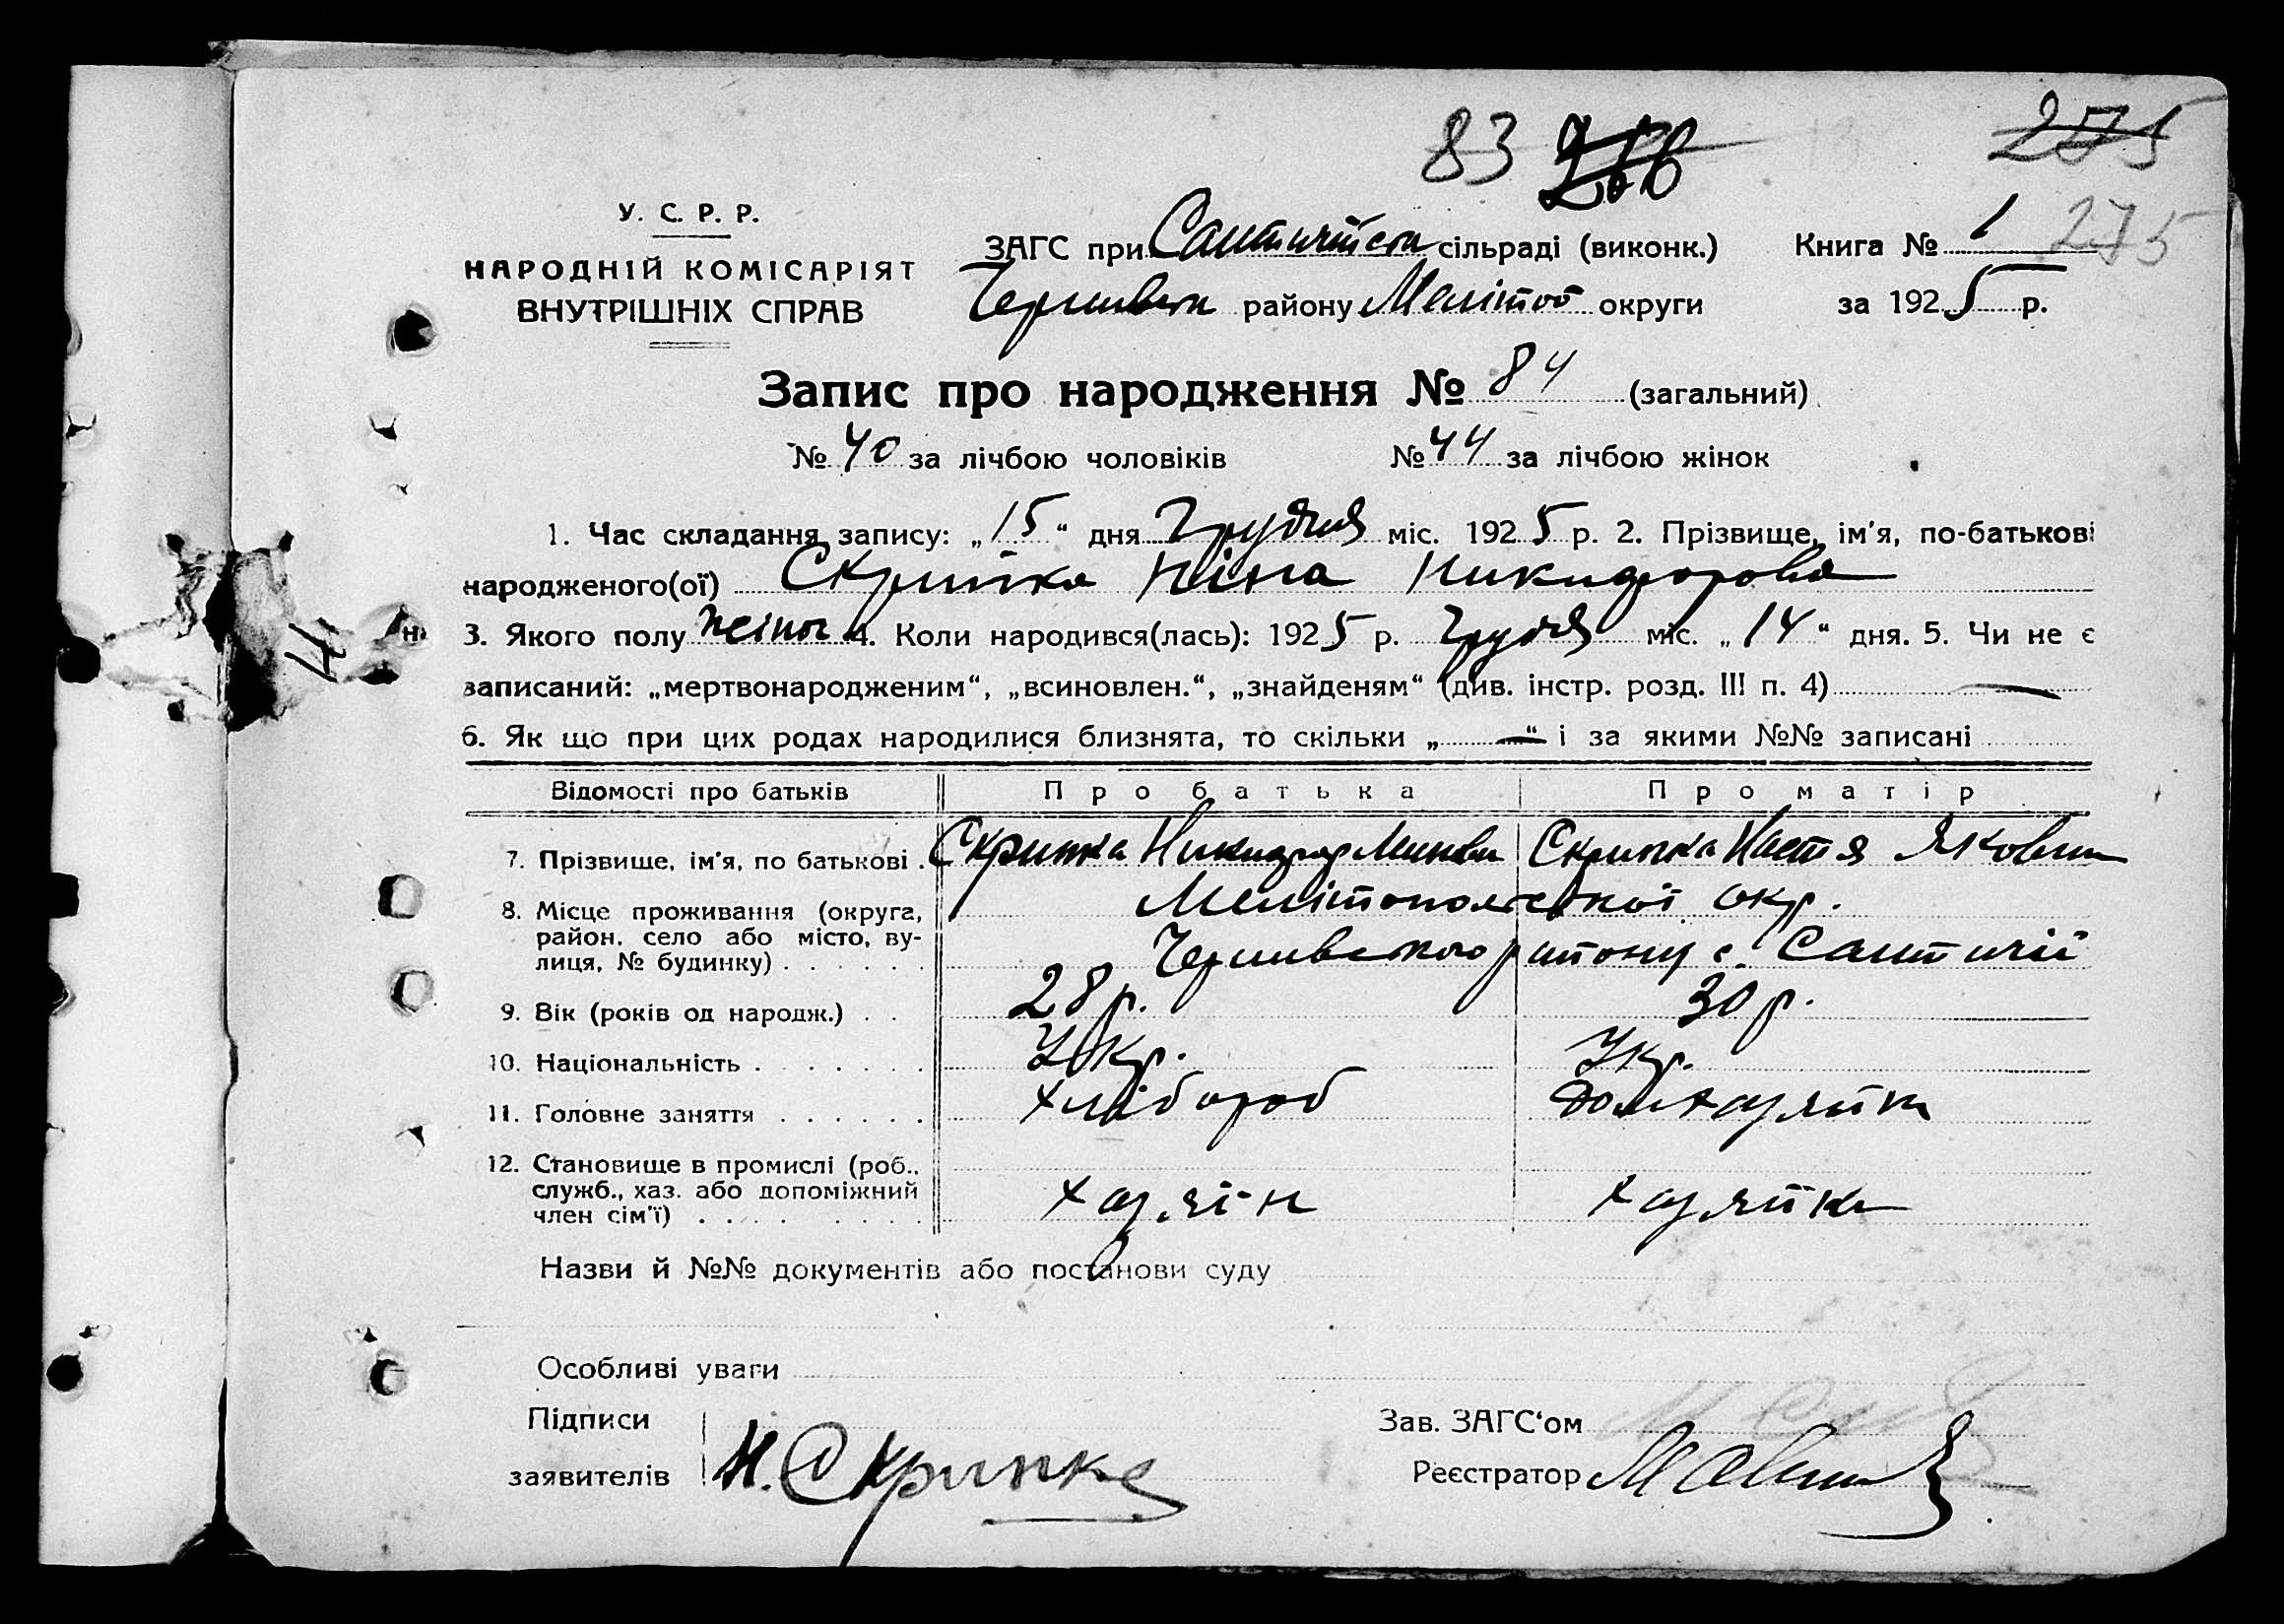 83 275
У. С. Р. Р.
НАРОДНІЙ КОМІСАРІЯТ
ВНУТРІШНІХ СПРАВ
ЗАГС при сільраді (виконк.) Книга № 1 275
району Меліт округи за 1925 р.
Запис про народження № 84 (загальний)
№ 40 за лічбою чоловіків № 44 за лічбою жінок
1. Час складання запису: „15“ дня Грудня міс. 1925 р. 2. Прізвище, ім'я, по-батькові
народженого(ої) Скрипка Ніна Никифоровна
3. Якого полу жіноч 4. Коли народився(лась): 1925 р. Грудня міс. „14“ дня. 5. Чи не є
записаний: „мертвонародженим“, „всиновлен.“, „знайденям“ (див. інстр. розд. III п. 4) —
6. Як що при цих родах народилися близнята, то скільки „—“ і за якими №№ записані
Відомості про батьків Про батька Про матір
7. Прізвище, ім'я, по батькові . Скрипка Никифор Скрипка Настя Яковин
8. Місце проживання (округа, Мелітопольської окр.
район, село або місто, ву-
лиця, № будинку) . . . . . . району с.
9. Вік (років од народж.) . . 28 р. 30 р.
10. Національність . . . . . . . Укр. Укр.
11. Головне заняття . . . . . . хлібороб домхазяйка
12. Становище в промислі (роб.,
служб., хаз. або допоміжний хазяїн хазяйка
член сім'ї) . . . . . . . . .
Назви й №№ документів або постанови суду
Особливі уваги
Підписи Зав. ЗАГС‘ом
заявителів Н. Скрипка Реєстратор